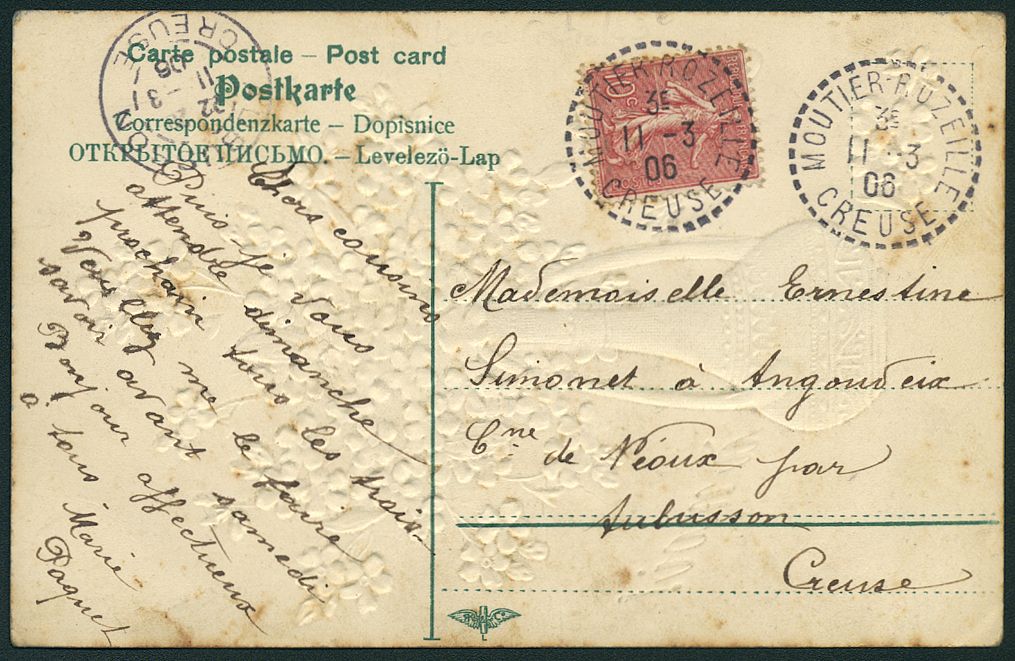 Carte postale – Post card
Postkarte
Correspondenzkarte – Dopisnice
ОТКРЫТОЕ ПИСЬМО. – Levelezö-Lap
CREUSE
11 - 3
06
10c
MOUTIER-ROZEILLE
3E
11 - 3
06
CREUSE
MOUTIER-ROZEILLE
3E
11 - 3
06
CREUSE
Chers cousins
Puis-je vous
attendre dimanche
prochain tous les trois
Veuillez me le faire
savoir avant samedi
Bonjour affectueux
à tous Marie
Paquet
Mademoiselle Ernestine
Simonet à Angoudeix
Cne de Néoux par
Aubusson
Creuse